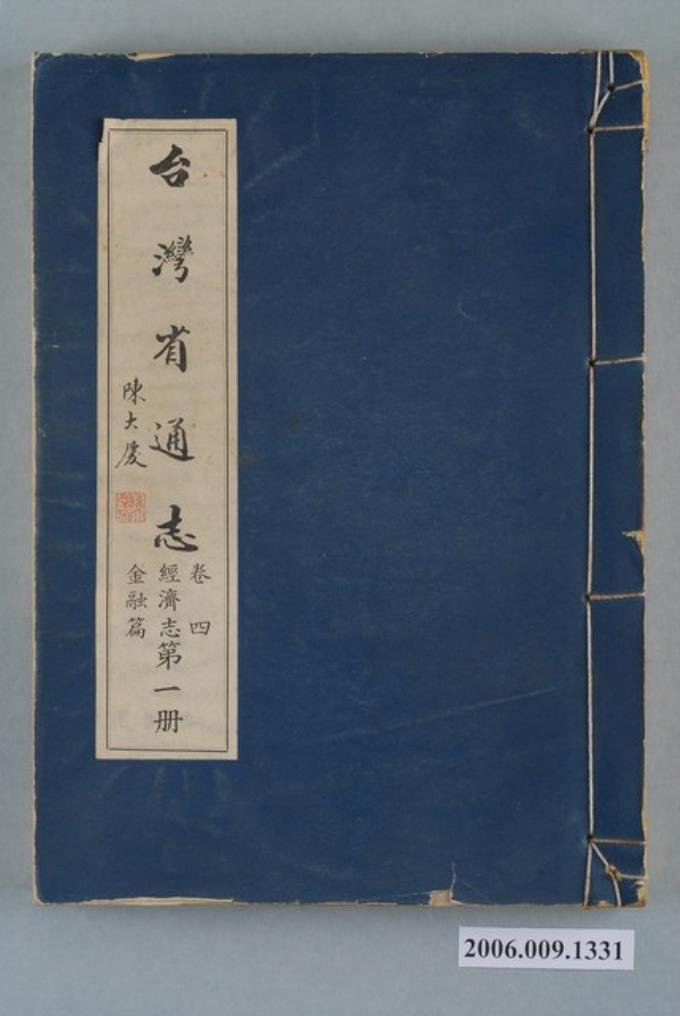 台灣省通志
卷四
經濟志第一册
金融篇
陳大慶
2006.009.1331